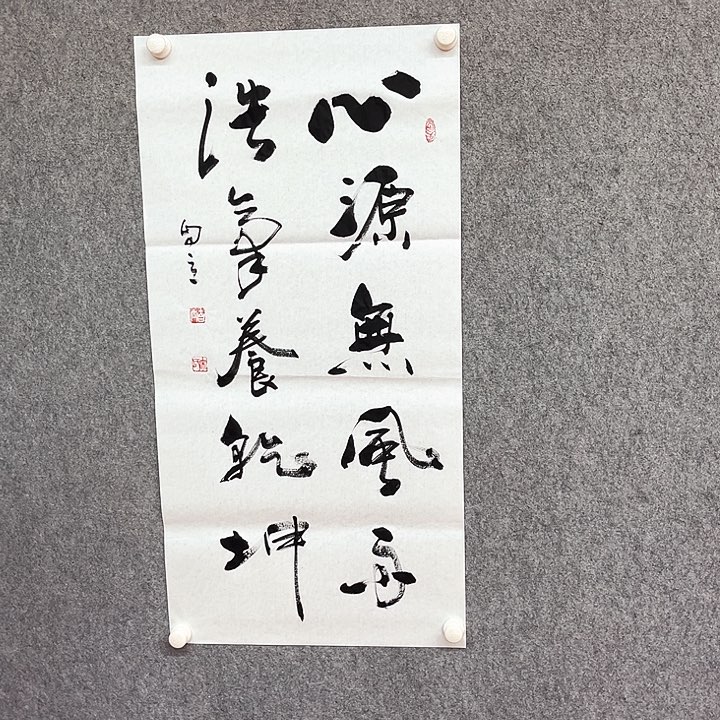 心源無風雨
浩氣養乾坤